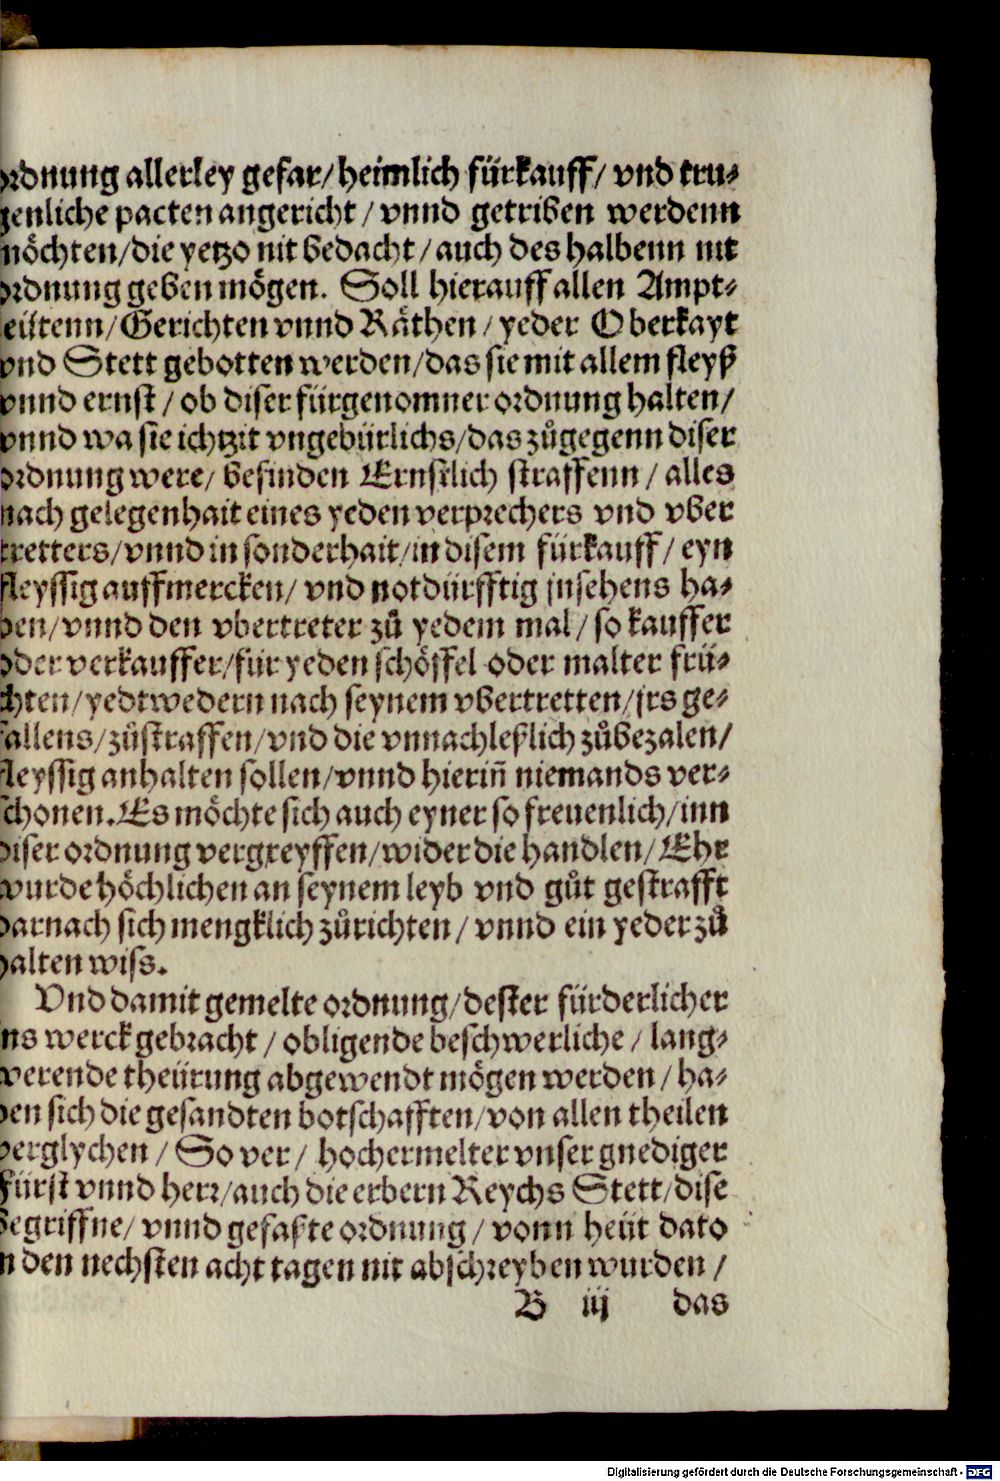 ordnung allerley gefar/heimlich fürkauff/ vnd tru⸗
genliche pacten angericht / vnnd getriben werdenn
möchten/die yetzo nit bedacht/auch des halbenn nit
ordnung geben mögen. Soll hierauff allen Ampt⸗
leütenn/Gerichten vnnd Räthen/yeder Oberkayt
vnd Stett gebotten werden/das sie mit allem fleyß
vnnd ernst / ob diser fürgenomner ordnung halten/
vnnd wa sie ichtzit vngebürlichs/das zůgegenn diser
ordnung were/ befinden Ernstlich straffenn / alles
nach gelegenhait eines yeden verprechers vnd vber
tretters/vnnd in sonderhait/in disem fürkauff/ eyn
fleyssig auffmercken/ vnd notdürfftig jnsehens ha⸗
ben/vnnd den vbertreter zů yedem mal/so kauffer
oder verkauffer/für yeden schöffel oder malter frü⸗
chten/yedtwedern nach seynem vbertretten/jrs ge⸗
fallens/zůstraffen/vnd die vnnachleßlich zůbezalen/
fleyssig anhalten sollen/vnnd hieriñ niemands ver⸗
schonen. Es möchte sich auch eyner so freuenlich/inn
diser ordnung vergreyffen/wider die handlen/Ehr
wurde höchlichen an seynem leyb vnd gůt gestrafft
darnach sich mengklich zůrichten/ vnnd ein yeder zů
halten wiss.
Vnd damit gemelte ordnung/dester fürderlicher
ins werck gebracht / obligende beschwerliche / lang⸗
werende theürung abgewendt mögen werden/ ha⸗
ben sich die gesandten botschafften/von allen theilen
verglychen / So ver / hochermelter vnser gnediger
Fürst vnnd herr/auch die erbern Reychs Stett/dise
begriffne/ vnnd gefaßte ordnung/ vonn heüt dato
in den nechsten acht tagen nit abschreyben wurden /
B iij das
Digitalisierung gefördert durch die Deutsche Forschungsgemeinschaft - DFG